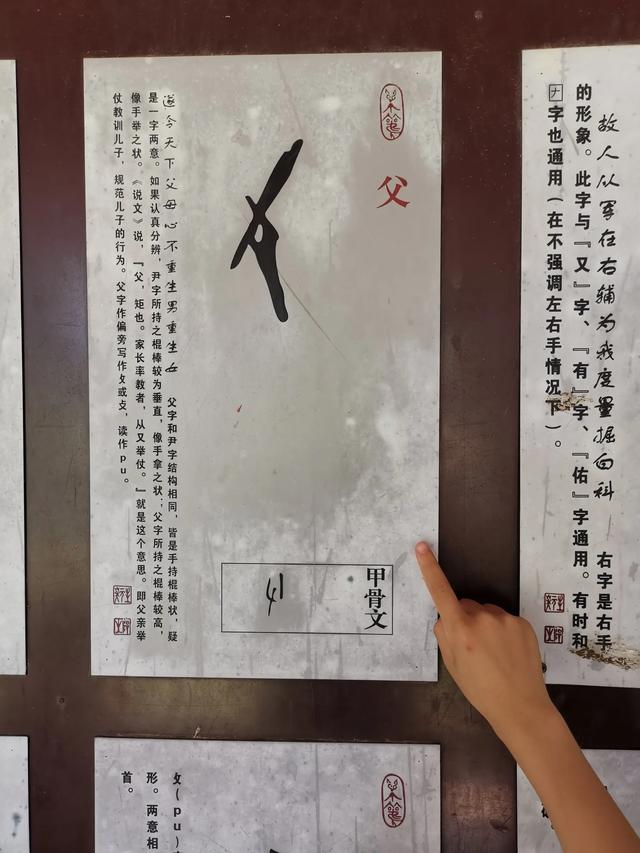 故人从军在右辅为我度量掘臼科 右字是右手
的形象。此字与『又』字、『有』字、『佑』字通用。有时和
字也通用（在不强调左右手情况下）。
父
甲骨文
遂令天下父母心不重生男重生女 父字和尹字结构相同，皆是手持棍棒状，疑
是一字两意。如果认真分辨，尹字所持之棍棒较为垂直，像手拿之状；父字所持之棍棒较高，
像手举之状。《说文》说，『父，矩也。家长率教者，从又举仗。』就是这个意思。即父亲举
仗教训儿子，规范儿子的行为。父字作偏旁写作攵或攴，读作pu。
攵(pu)
形。两意相
首。